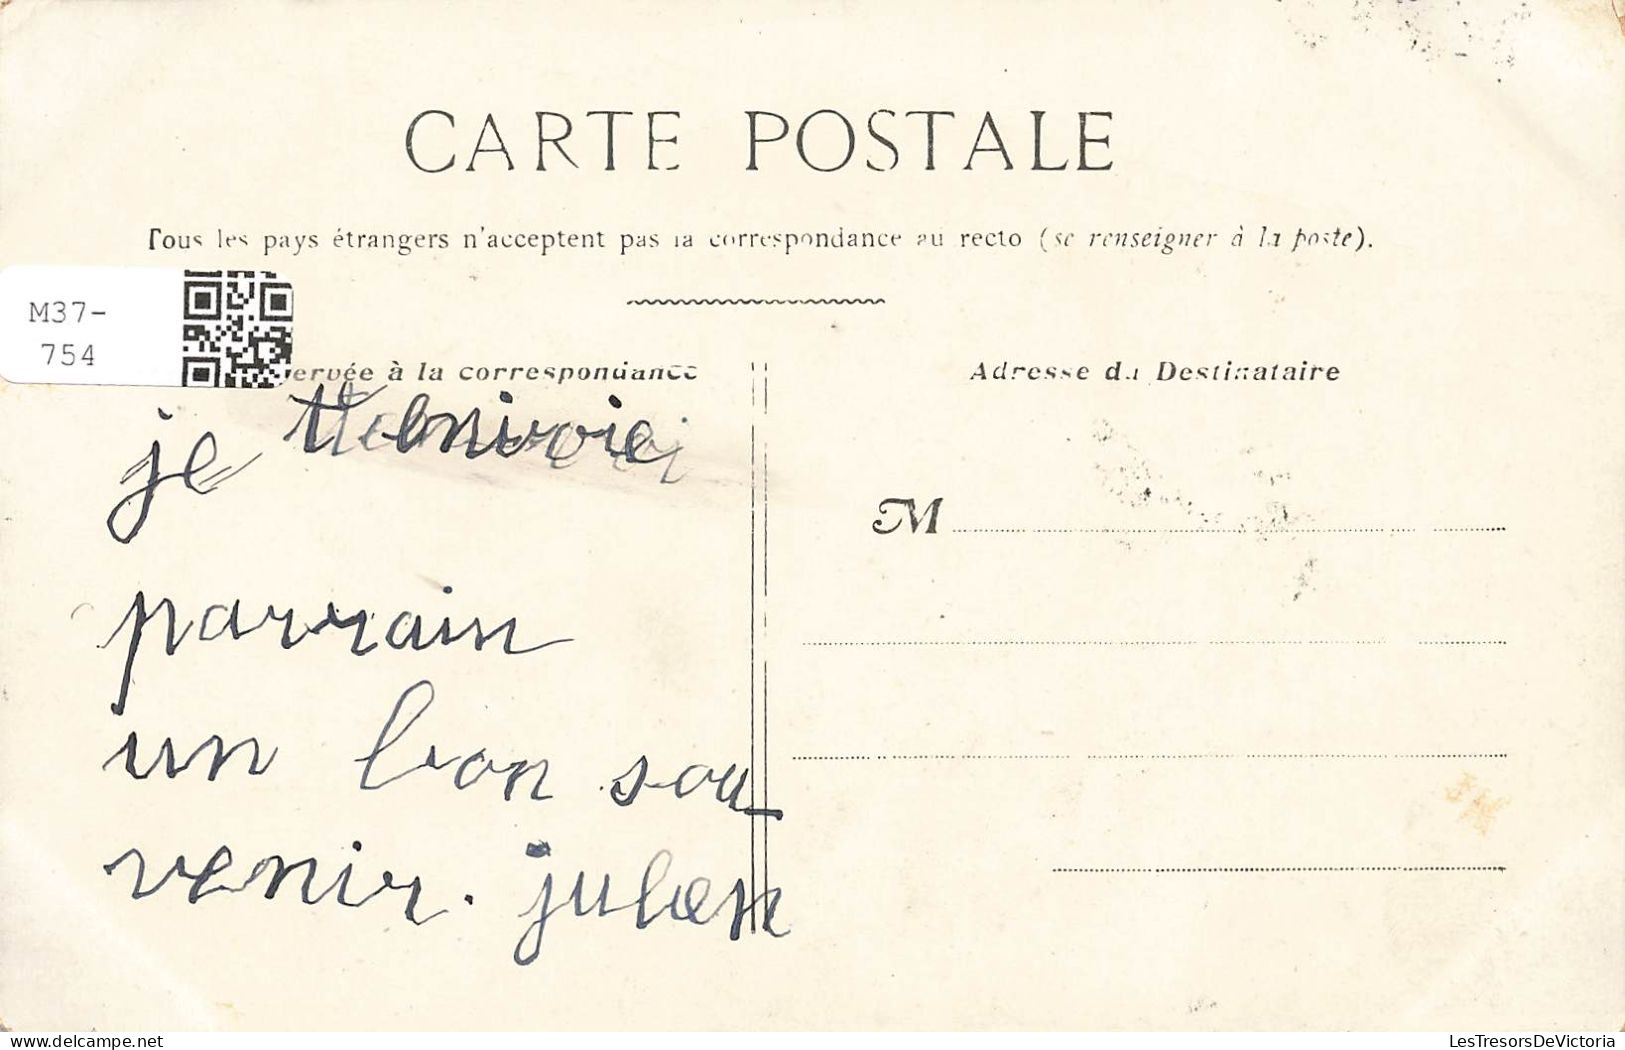 CARTE POSTALE
Tous les pays étrangers n'acceptent pas la correspondance au recto (se renseigner à la poste).
M37-
754
ervée à la correspondance
Adresse du Destinataire
je t'envoie
M
parrain
un bon sou-
venir. julien
LesTresorsDeVictoria
delcampe.net